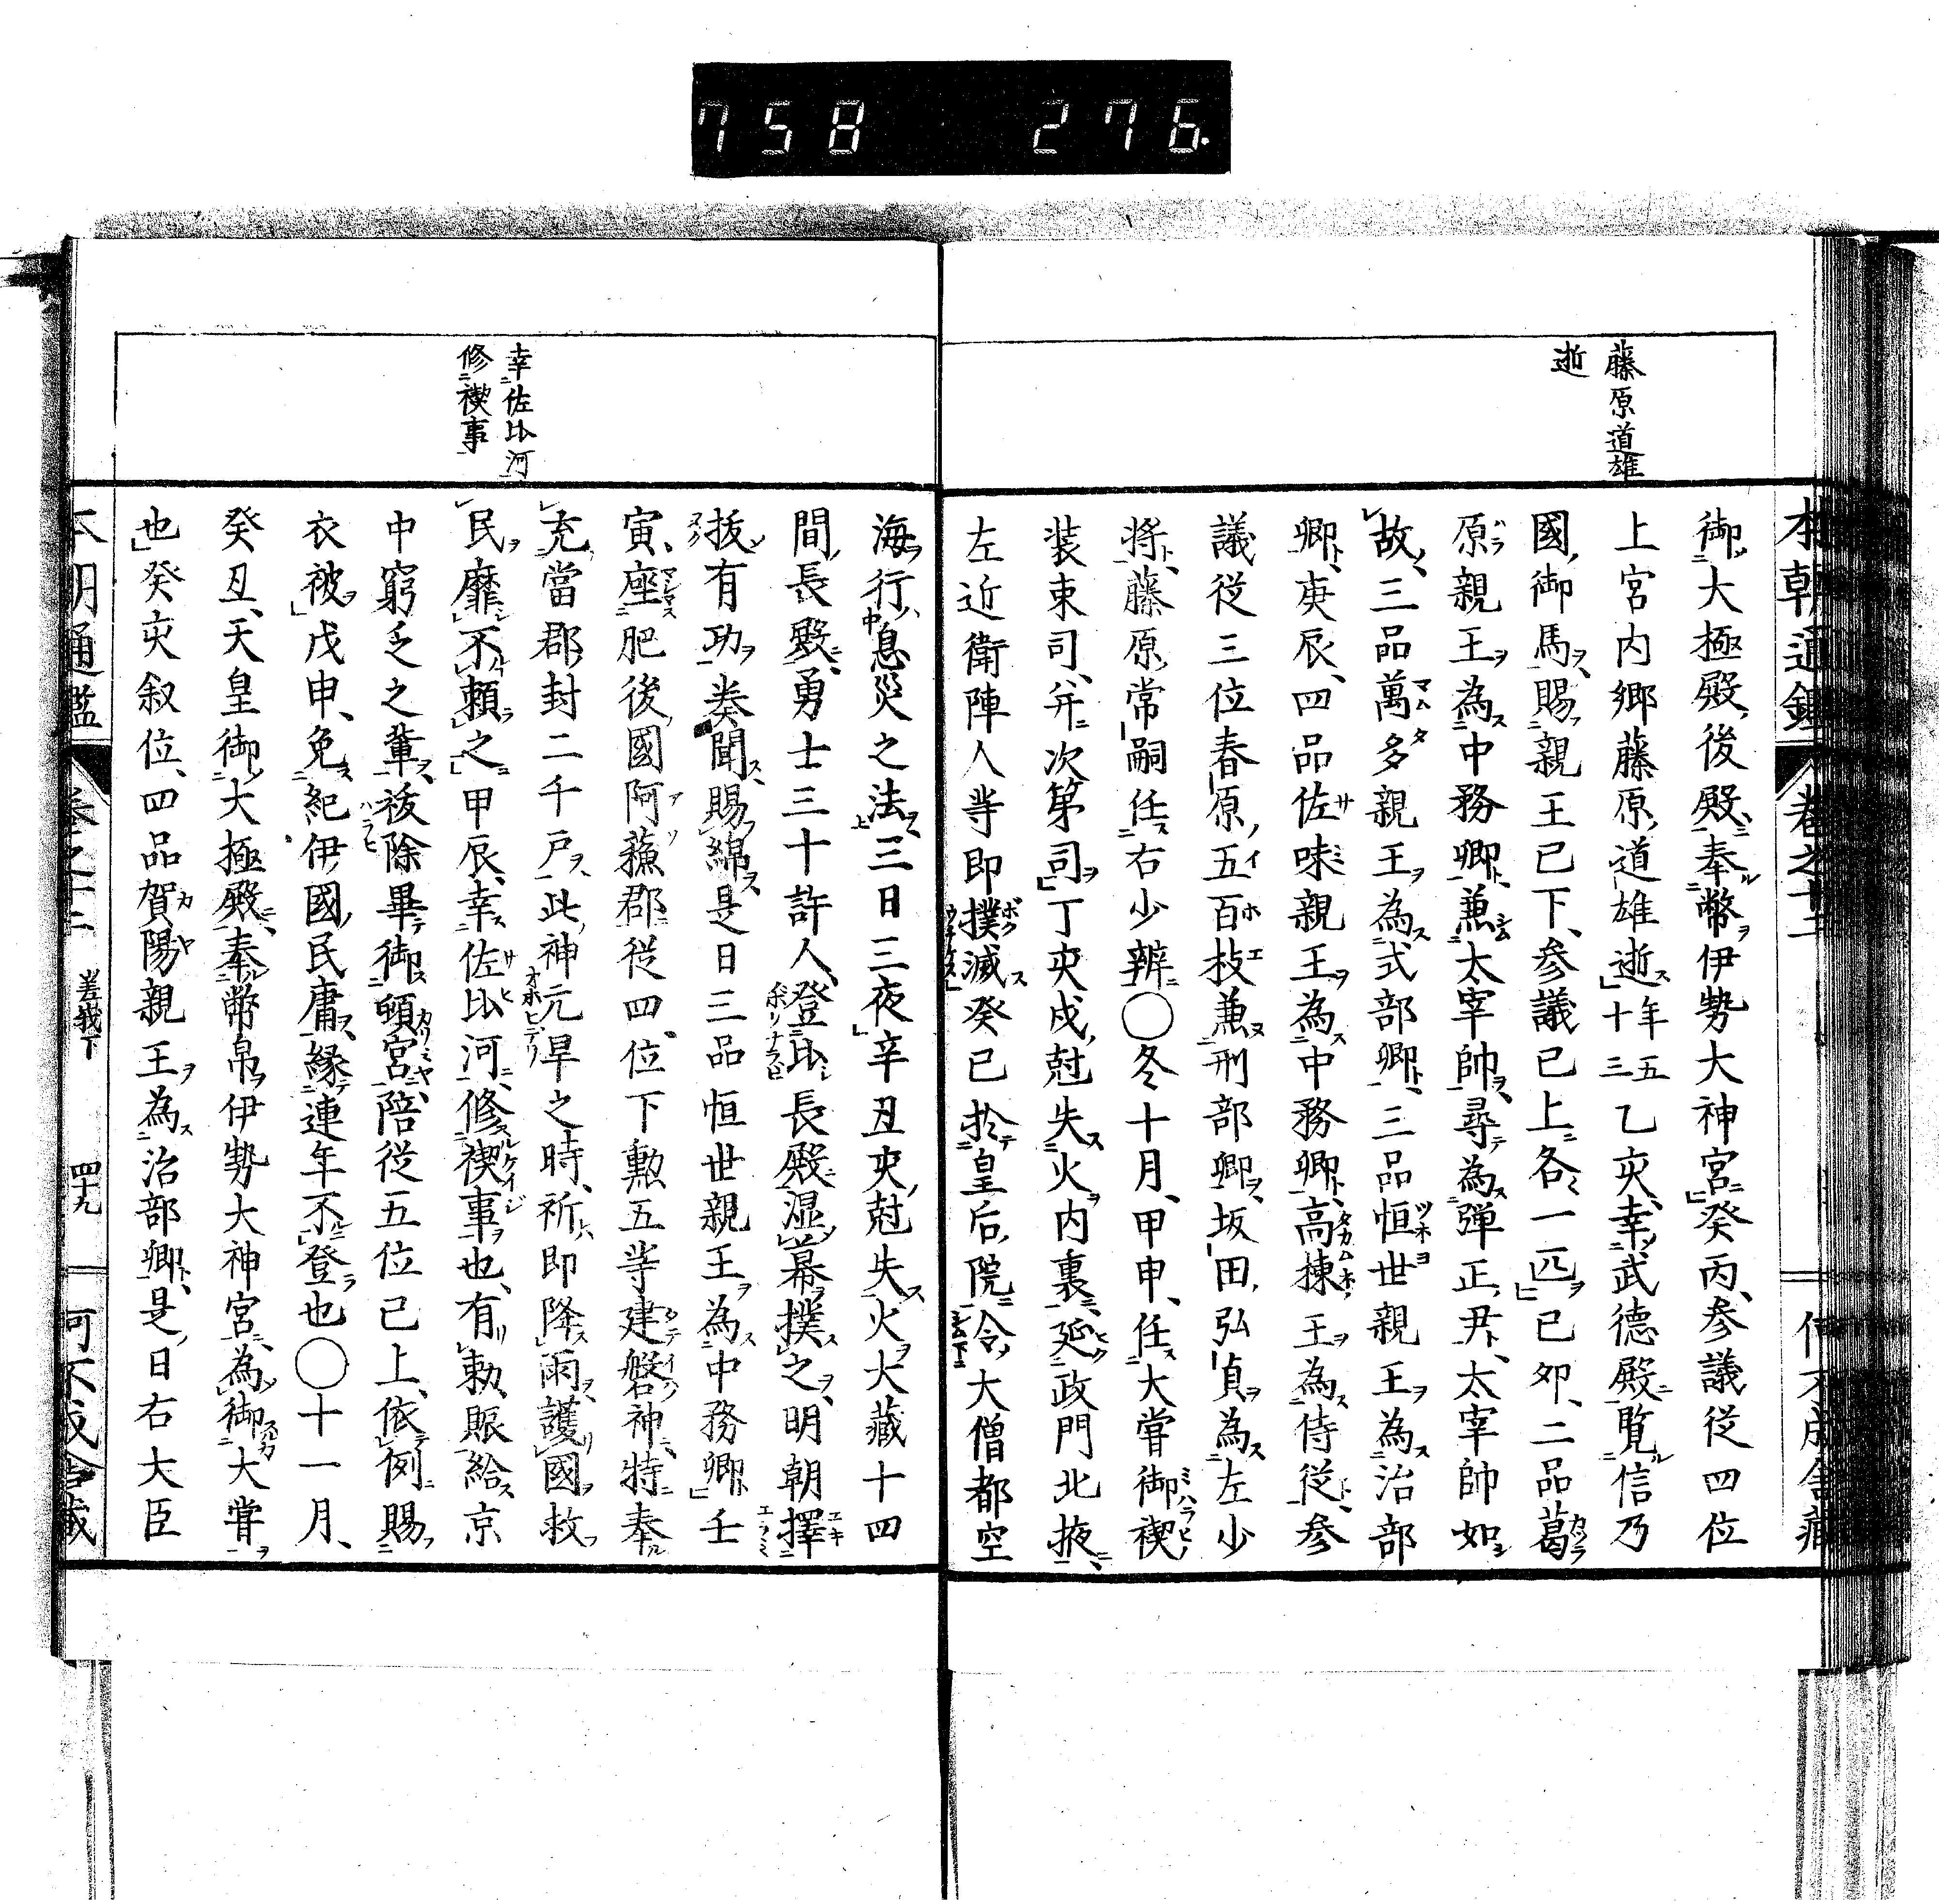 758 276.
藤原道雄
逝
本朝通鑑 卷之十二
御大極殿後殿、奉幣伊勢大神宮癸丙、参議従四位
上宮内卿藤原道雄逝年五十三乙亥、幸武徳殿覧信乃
國御馬、賜親王已下、参議已上各一匹已夘、二品葛
原親王為中務卿、兼太宰帥、尋為弾正尹、太宰帥如
故、三品萬多親王為式部卿、三品恒世親王為治部
卿、庚辰、四品佐味親王為中務卿、高棟王為侍従、参
議従三位春原五百枝兼刑部卿、坂田弘貞為左少
将、藤原常嗣任右少辨〇冬十月、甲申、任大甞御禊
装束司、并次第司丁亥戌尅失火内裏、延政門北掖、
左近衛陣人等即撲滅癸已於皇后院令大僧都空
海行息災之法三日三夜辛丑亥尅失火大藏十四
間長殿、勇士三十許人、登比長殿湿幕撲之、明朝擇
抜有功、奏聞、賜綿、是日三品恒世親王為中務卿壬
寅、座肥後國阿蘇郡従四位下勲五等建磐神、特奉
充當郡封二千戸、此神亢旱之時、祈即降雨、護國救
民靡不頼之甲辰、幸佐比河、修禊事也、有勅、賑給京
中窮乏之輩、祓除畢御頓宮、陪従五位已上、依例賜
衣被戊申、免紀伊國民庸、縁連年不登也〇十一月、
癸丑、天皇御大極殿、奉幣帛伊勢大神宮、為御大甞
也癸亥叙位、四品賀陽親王為治部卿、是日右大臣
幸佐比河
修禊事
本朝通鑑 卷之十二 嵯峨下 四十九